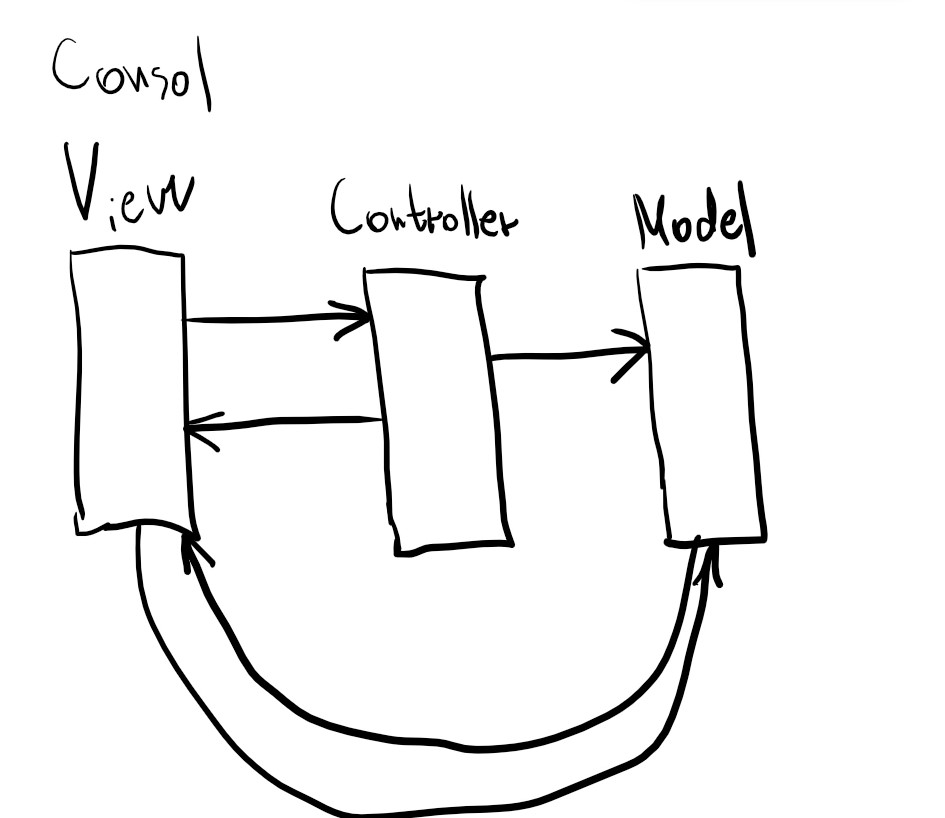 Consol
View
Controller
Model